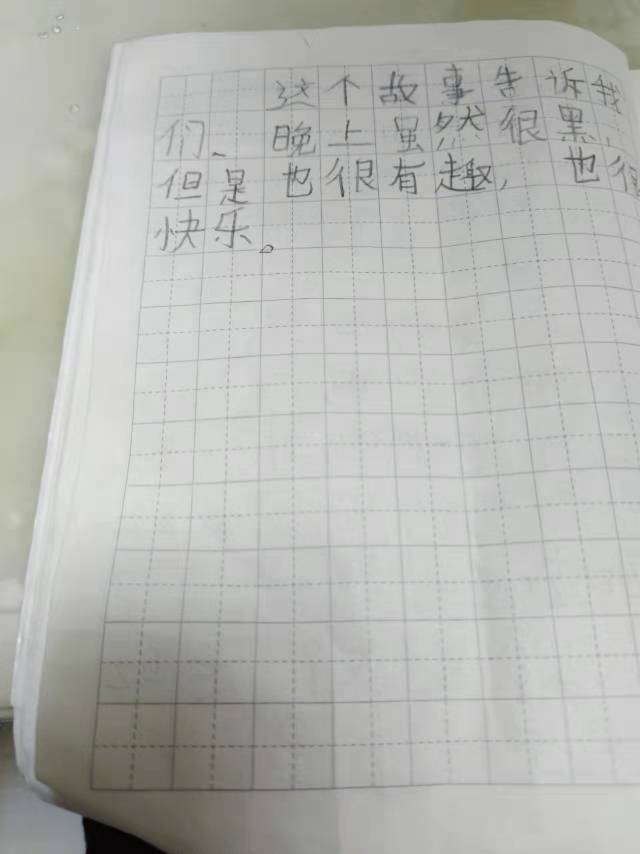 这个故事告诉我
们、晚上虽然很黑,
但是也很有趣,也很
快乐。